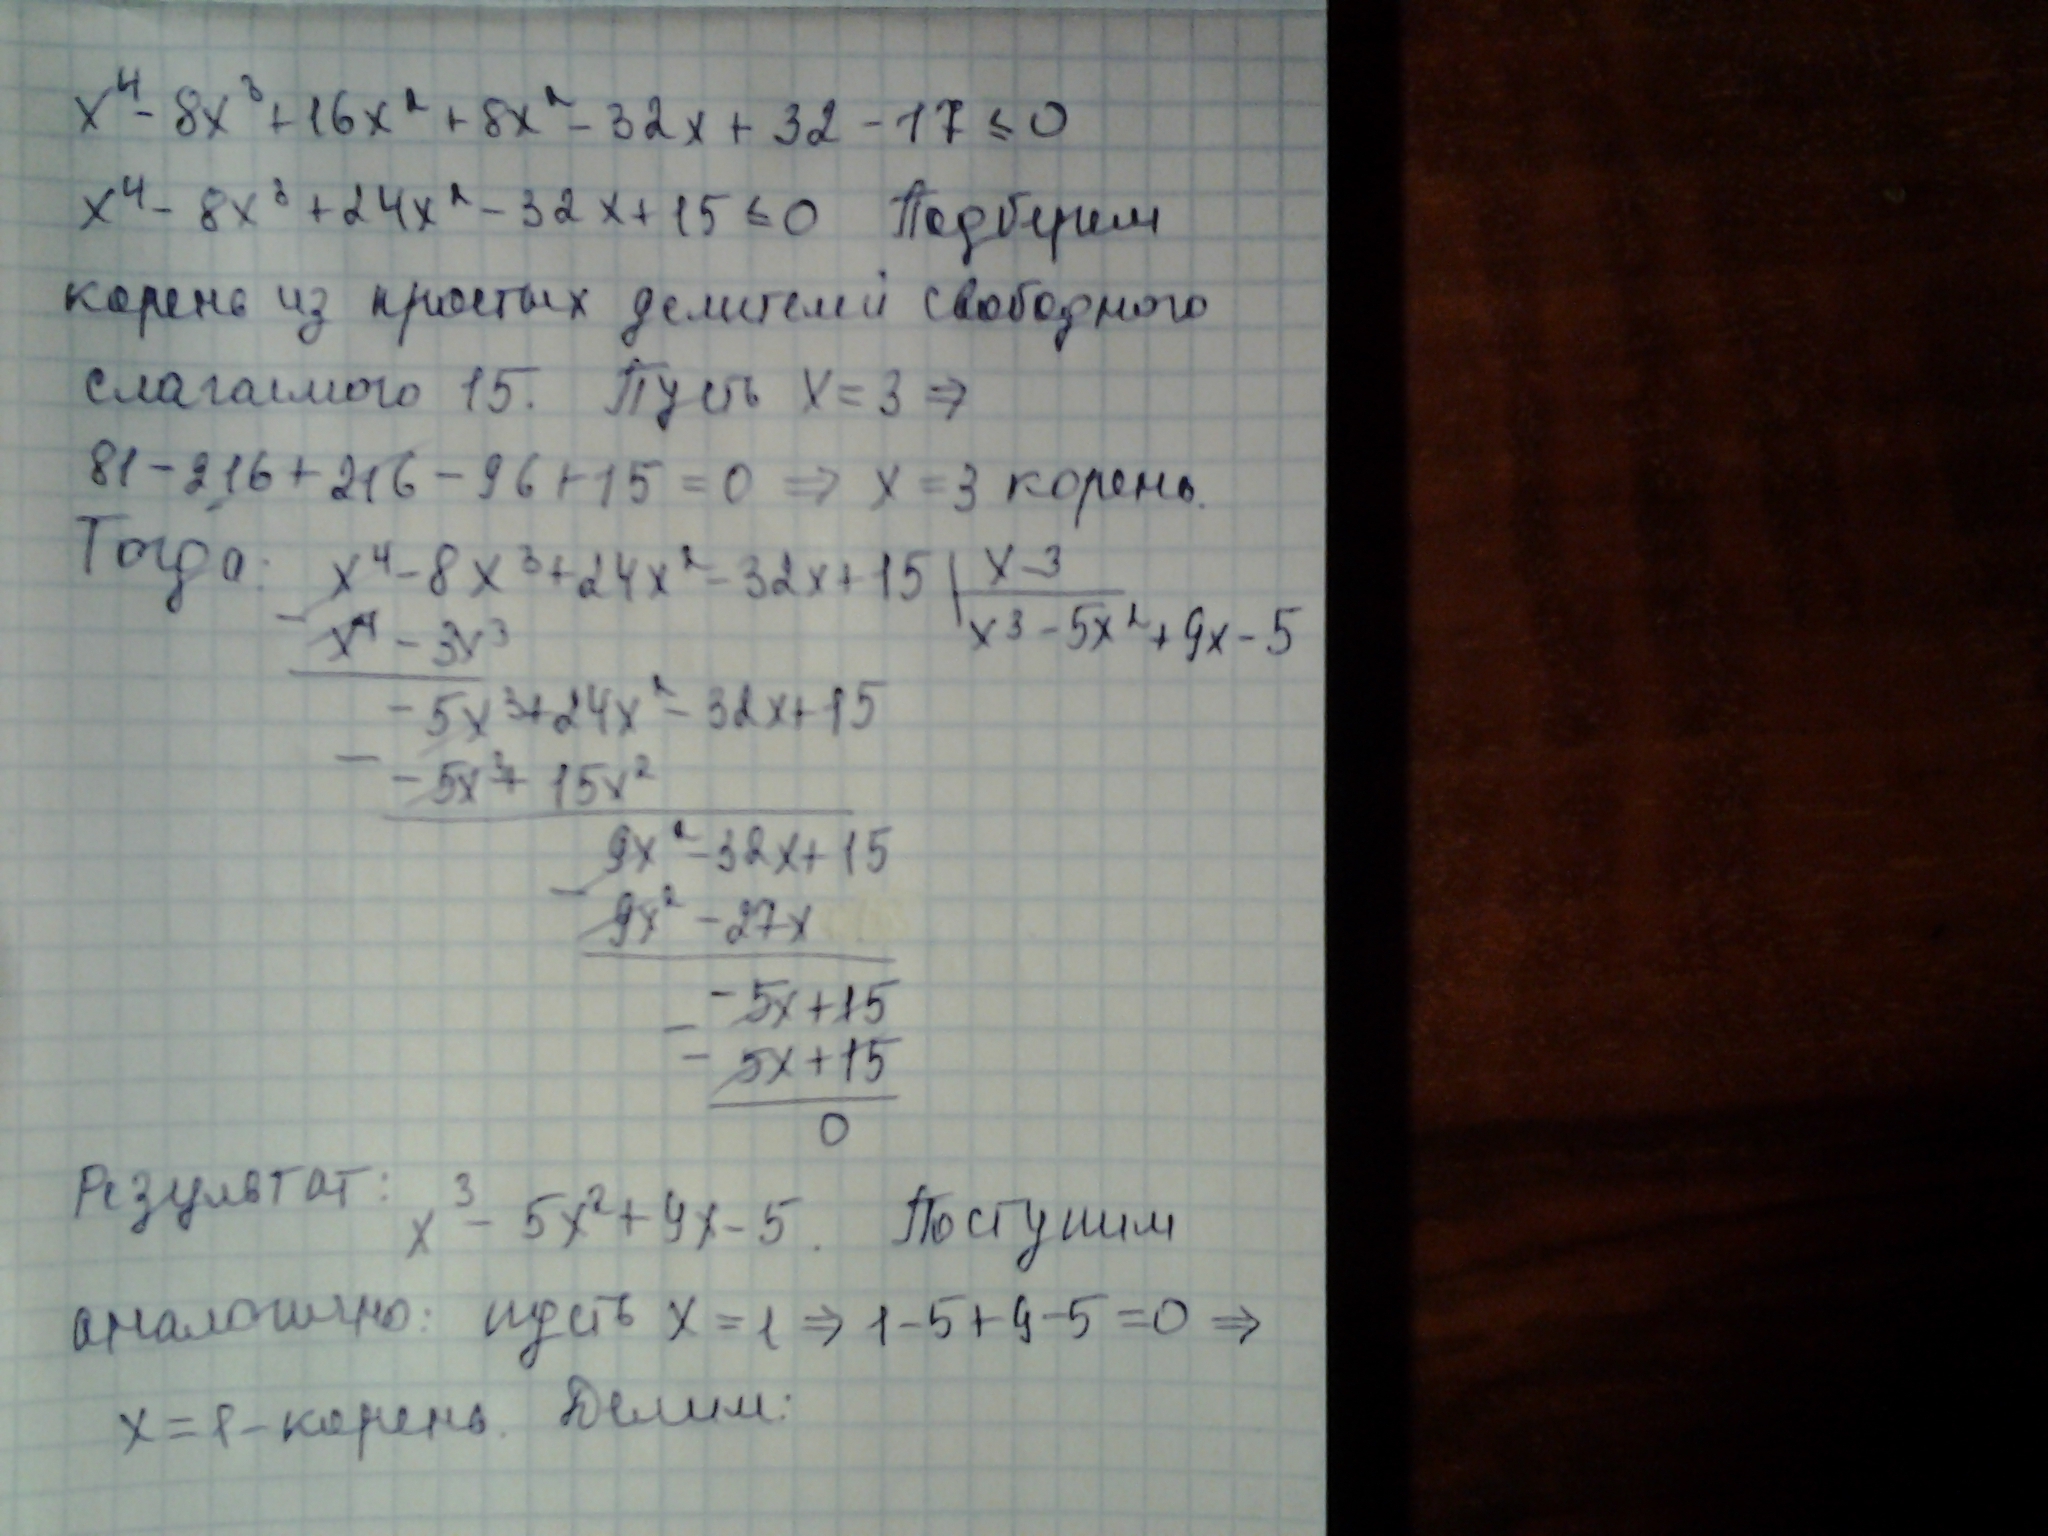 x⁴ - 8x³ + 16x² + 8x² - 32x + 32 - 17 ≤ 0
x⁴ - 8x³ + 24x² - 32x + 15 ≤ 0 Подберем
корень из простых делителей свободного
слагаемого 15. Пусть x = 3 ⇒
81 - 216 + 216 - 96 + 15 = 0 ⇒ x = 3 корень.
Тогда: x⁴ - 8x³ + 24x² - 32x + 15 | x - 3
- x⁴ - 3x³ x³ - 5x² + 9x - 5
- 5x³ + 24x² - 32x + 15
- - 5x³ + 15x²
9x² - 32x + 15
- 9x² - 27x
- 5x + 15
- - 5x + 15
0
Результат: x³ - 5x² + 9x - 5. Поступим
аналогично: пусть x = 1 ⇒ 1 - 5 + 9 - 5 = 0 ⇒
x = 1 - корень. Делим: